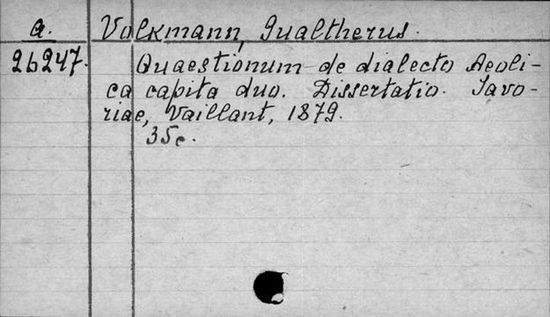 a. Volkmann, Gualtherus.
26247. Quaestionum de dialecto Aeoli-
ca capita duo. Dissertatio. Javo-
riae, Vaillant, 1879.
35c.